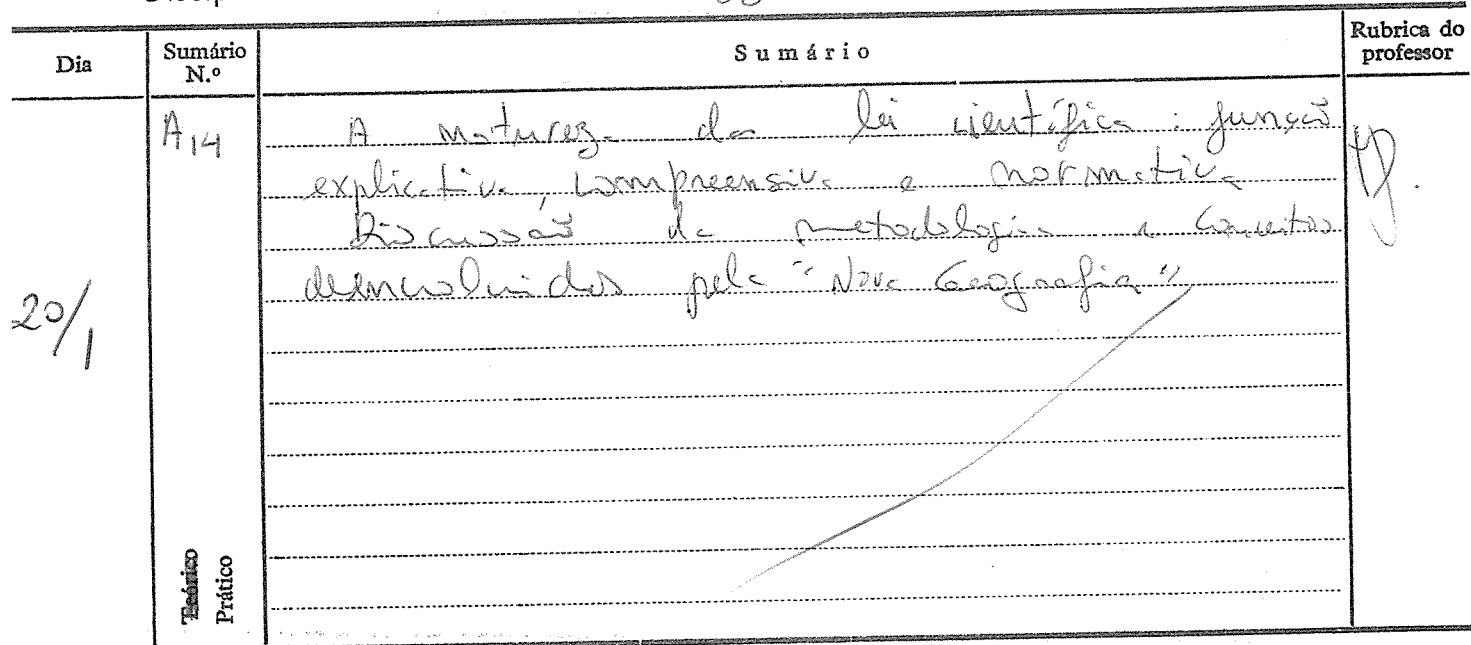 Dia
Sumário N.º
Sumário
Rubrica do professor
20/1
A14
A natureza da lei científica: função
explicativa, compreensiva e normativa
Discussão de metodologias e conceitos
desenvolvidos pela "Nova Geografia"
Teórico
Prático